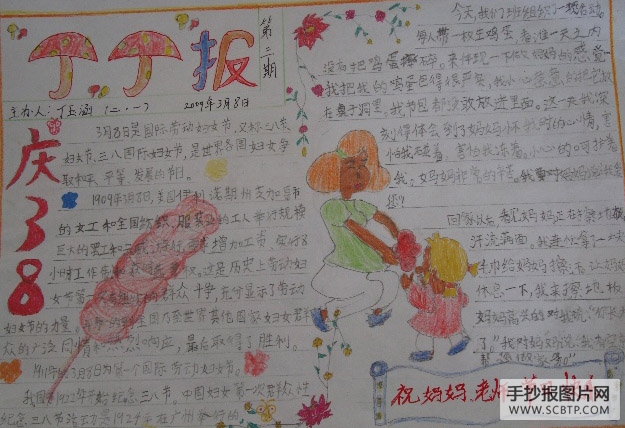 丁丁报
第二期
主办人：丁玉涵（二·一） 2009年3月8日
庆38
3月8日是国际劳动妇女节，又称三八劳
妇女节、三八国际妇女节，是世界各国妇女争
取和平、平等、发展的节日。
1909年3月8日，美国伊利诺斯州芝加哥市
的女工和全国纺织、服装业的工人举行规模
巨大的罢工和 要求增加工资，实行8
小时工作制和获得 权。这是历史上劳动妇
女节第一次有组织的群众斗争，充分显示了劳动
妇女的力量。 全国乃至世界其他国家妇女
众的广泛同情和热烈响应，最后取得了胜利。
3月8日为第一个国际劳动妇女节。
我国于1922年开始纪念三八节。中国妇女第一次群众性
纪念三八节活动是1924年在广州举行的
今天，我们班组织了一项活动。
每人带一枚生鸡蛋，看谁一天之内
没有把鸡蛋 碎。来体现一下做妈妈的感觉。
我把我的鸡蛋包得很严实，我小心翼翼的把它放
在桌子洞里，我书包都没敢放进里面。这一天我深
刻体会到了妈妈怀我时的心情，害
怕我碰着，害怕我冻着。小心的呵护着
我，妈妈非常的辛苦。我要对妈妈
回家以后，看见妈妈正在 动
汗流满面。我连忙拿了一块
毛巾给妈妈擦汗，让妈妈
休息一下，我来擦地板
妈妈高兴的对我说："你长大
了"我对妈妈说
祝妈妈、老师
手抄报图片网
WWW.SCBTP.COM